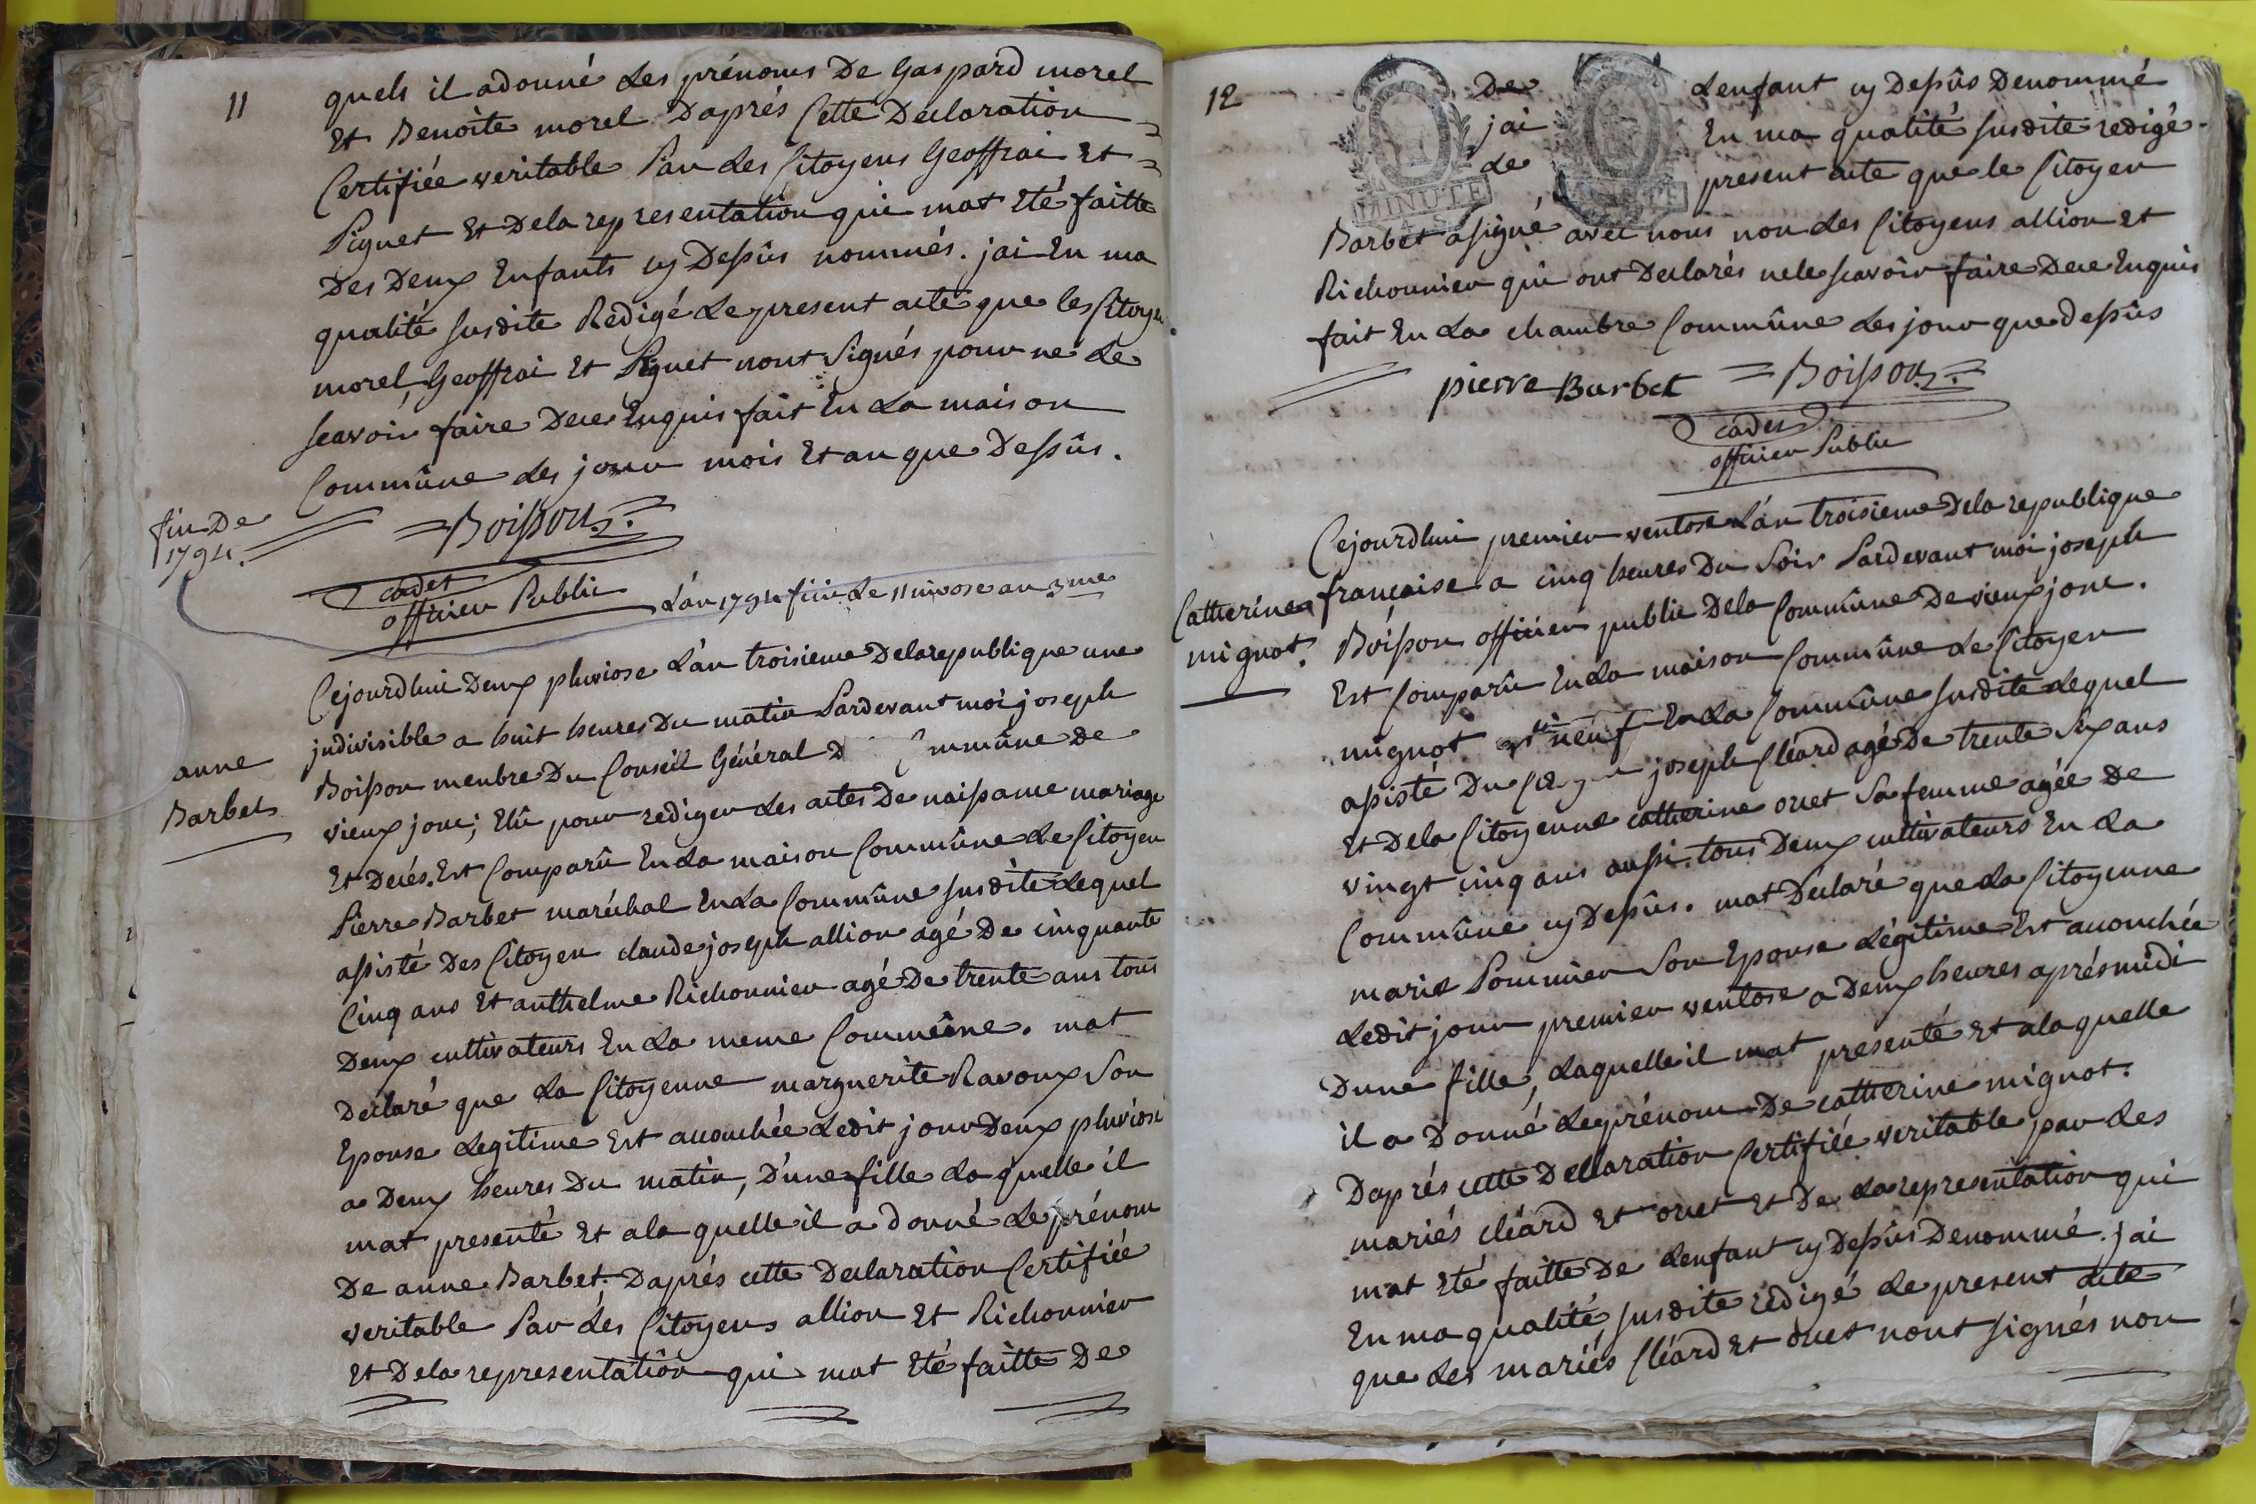 11
quels il adonné les prénoms De Gaspard morel
Et Benoite morel Daprés Cette Declaration
Certifiée veritable Par les Citoyens Geoffrai Et
Piguet Et Dela representation qui mat Eté faitte
Des Deux Enfants cy Dessûs nommés. jai En ma
qualité susdite Redigé Le present acte que les Citoy
morel, Geoffrai Et Piguet nont Signés pour ne le
scavoir faire Dece Enquis fait En La maison
Commûne les jour mois Et an que Dessûs.
fin De
1794.
Boisson
cadet
officier Public
L'an 1794 fini Le 11 nivose an 3me
anne
Barbet
Cejourdhui Deux pluviose L'an troisieme Delarepublique une
indivisible a huit heures Du matin Pardevant moi joseph
Boisson menbre Du Conseil Général D mmûne De
vieux jonc; Elû pour rediger les actes De naissance mariage
Et Decés. Est Comparû En La maison Commûne Le Citoyen
Pierre Barbet maréchal En La Commûne susdite Lequel
assisté Des Citoyen claude joseph allion agé De cinquante
Cinq ans Et anthelme Richonnier agé De trente ans tous
Deux cultivateurs En La meme Commûne. mat
Declaré que La Citoyenne marguerite Ravoux Son
Epouse Legitime Est accouchée Ledit jour Deux pluviose
a Deux heures Du matin, D'une fille La quelle il
mat presenté Et ala quelle il a donné Le prénom
De anne Barbet. Daprés cette Declaration Certifiée
veritable Par Les Citoyens allion Et Richonnier
Et Dela representation qui mat Eté faitte De
12
De Lenfant cy Dessûs Denommé
jai En ma qualité susdite redigé
Le present acte que le Citoyen
MINUTE
Barbet asigné avec nous non les Citoyens allion Et
Richonnier qui ont Declarés nele scavoir faire Dece Enquis
fait En La chambre Commûne les jour que Dessûs
pierre Barbet Boisson
cadet
officier Public
Catherine
mignot.
Cejourdhui premier ventose L'an troisieme Dela republique
française a cinq heures Du Soir Pardevant moi joseph
Boisson officier public Dela Commûne De vieux jonc.
Est Comparû En La maison Commûne Le Citoyen
mignot neuf En La Commûne susdite Lequel
assisté Du joseph Cléard agé De trente Six ans
Et Dela Citoyenne catherine ovet Sa femme agée De
vingt cinq ans aussi. tous Deux cultivateurs En La
Commûne cy Dessûs. mat Déclaré que La Citoyenne
marie Pommier Son Epouse Légitime Est accouchée
Ledit jour premier ventose a Deux heures aprés midi
Dune fille, Laquelle il mat presenté Et ala quelle
il a Donné Le prénom De catherine mignot.
Daprés cette Declaration Certifiée veritable par Les
mariés cléard Et ovet Et De La representation qui
mat Eté faitte De Lenfant cy Dessûs Denommé. jai
En ma qualité susdite redigé Le present acte
que Les mariés Cléard Et ovet nont signés non